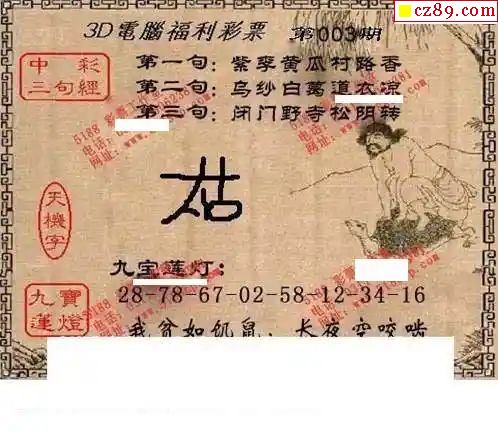 cz89.com
3D電腦福利彩票 第003期
中彩
三句經
第一句：紫李黄瓜村路香
第二句：乌纱白葛道衣凉
第三句：闭门野寺松阴转
天機字
九宝莲灯：
九寶
蓮燈
28-78-67-02-58-12-34-16
我贫如饥鼠，长夜空咬啮